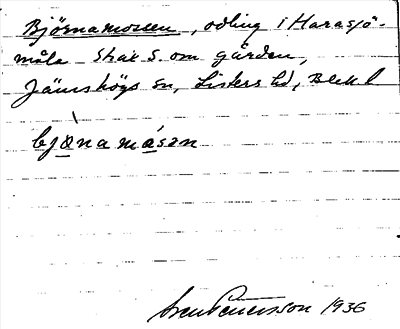 Björnamossen, odling i Harasjö-
måla strax S. om gården,
Jämshögs sn, Listers hd, Blek l
bjönamåsan
Sven Benson 1936